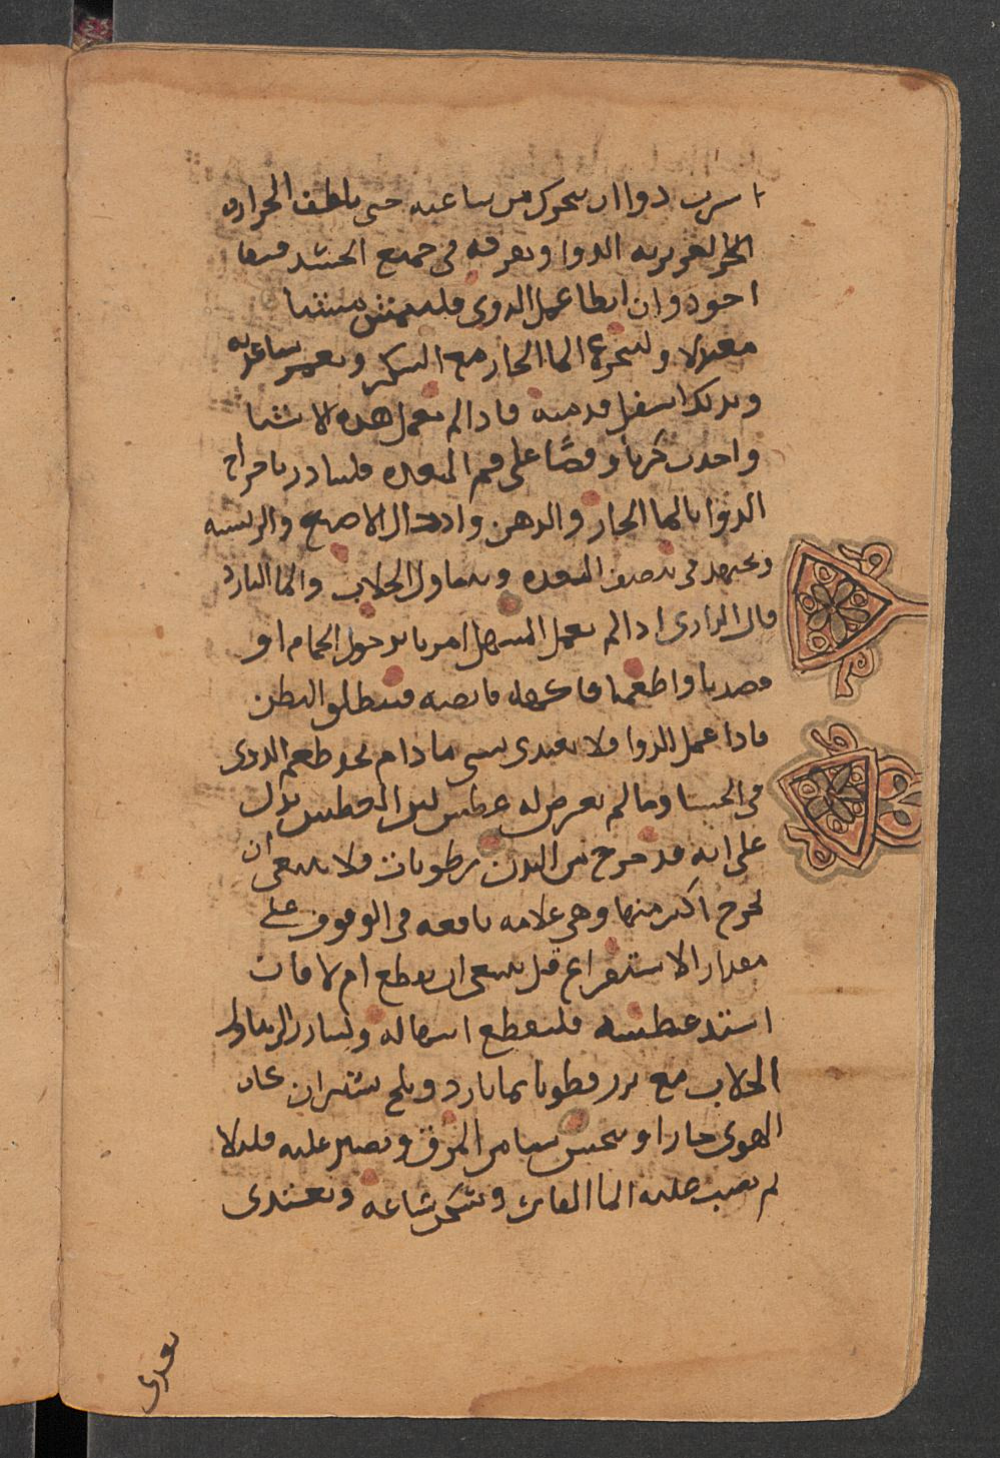 اسرب دوا ان يتحرك من ساعته حتى يلطف الحراره
الغريزيه الدوا ويعرفه في جميع الجسد فيها
اجود وان ابطا عمل الدوى فليمشى مشيا
معتدلا وليتجرع الما الحار مع السكر ويغمر ساعديه
ويدلك اسفل قدميه فاذا لم تعمل هذه الاشيا
واحدث كربا و على فم المعده فليبادر باخراج
الدوا بالما الحار والدهن وادخال الاصبع والريشه
ويجتهد في تنضيف المعده ويتناول الجلاب والما البارد
قال الرازى اذا لم يعمل المسهل امرنا بدخول الحمام او
فصدنا واطعمنا فاكهه قابضه فينطلق البطن
فاذا عمل الدوا فلا يغتدى بشي ما دام يجد طعم الدوى
في الجشا وما لم يعرض له عطش لان العطش يدل
على انه قد خرج من البدن رطوبات فلا ينبغى ان
تخرج اكثر منها وهى علامه نافعه في الوقوف على
مقدار الاستفراغ هل ينبغى ان يقطع ام لا فان
اشتد عطشه فليقطع اسهاله وليبادر الى تناول
الجلاب مع بزر قطونا بما بارد وثلج ان كان
الهوى حارا او يتحسى من المرق ويصبر عليه قليلا
ثم يصب عليه الما الفاتر ويسكن ساعه ويغتدى
بعدى